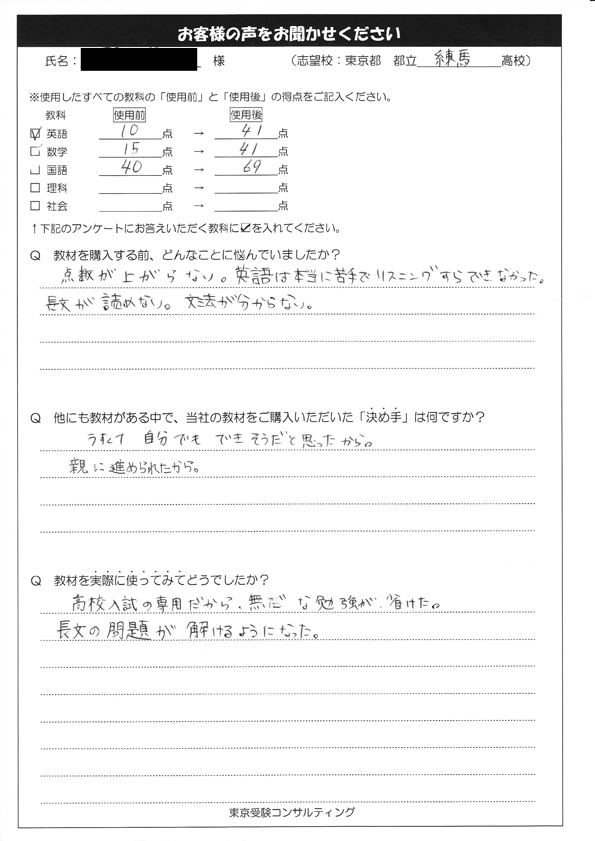 お客様の声をお聞かせください
氏名： 様 （志望校：東京都 都立 練馬 高校）
※使用したすべての教科の「使用前」と「使用後」の得点をご記入ください。
教科 使用前 使用後
☑ 英語 10 点 → 41 点
□ 数学 15 点 → 41 点
□ 国語 40 点 → 69 点
□ 理科 点 → 点
□ 社会 点 → 点
↑下記のアンケートにお答えいただく教科に☑を入れてください。
Q 教材を購入する前、どんなことに悩んでいましたか？
点数が上がらない。英語は本当に苦手でリスニングすらできなかった。
長文が読めない。文法が分からない。
Q 他にも教材がある中で、当社の教材をご購入いただいた「決め手」は何ですか？
うすくて 自分でも できそうだと思ったから。
親に進められたから。
Q 教材を実際に使ってみてどうでしたか？
高校入試の専用だから、無だな勉強が、省けた。
長文の問題が解けるようになった。
東京受験コンサルティング